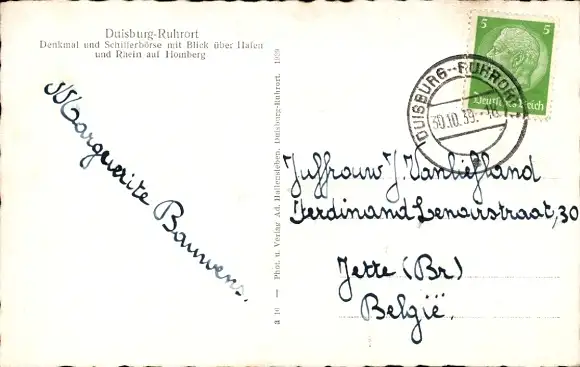 Duisburg-Ruhrort
Denkmal und Schifferbörse mit Blick über Hafen
und Rhein auf Homberg
Marguerite Bauwens.
a 10 — Phot. u. Verlag Ad. Hallensleben, Duisburg-Ruhrort. 1939
5 5
Deutsches Reich
DUISBURG-RUHRORT
30.10.39
Juffrouw J. Vanliefland
Ferdinand Lenoirstraat, 30
Jette (Br)
België.